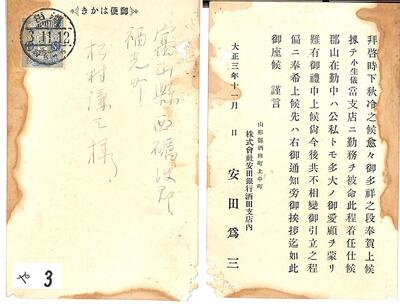 郵便はかき
3.11.12
富山縣西礪波郡
福光町
松村謙三様
3
拝啓時下秋冷之候愈々御多祥之段奉賀上候
扨テ小生儀當支店ニ勤務ヲ被命此程着任仕候
郡山在勤中ハ公私トモ多大ノ御愛顧ヲ蒙リ
難有御禮申上候尙今後共不相變御引立之程
偏ニ奉希上候先ハ右御通知旁御挨拶迄如此
御座候 謹言
大正三年十一月 日
山形縣酒田町上中町
株式會社安田銀行酒田支店內
安田爲三